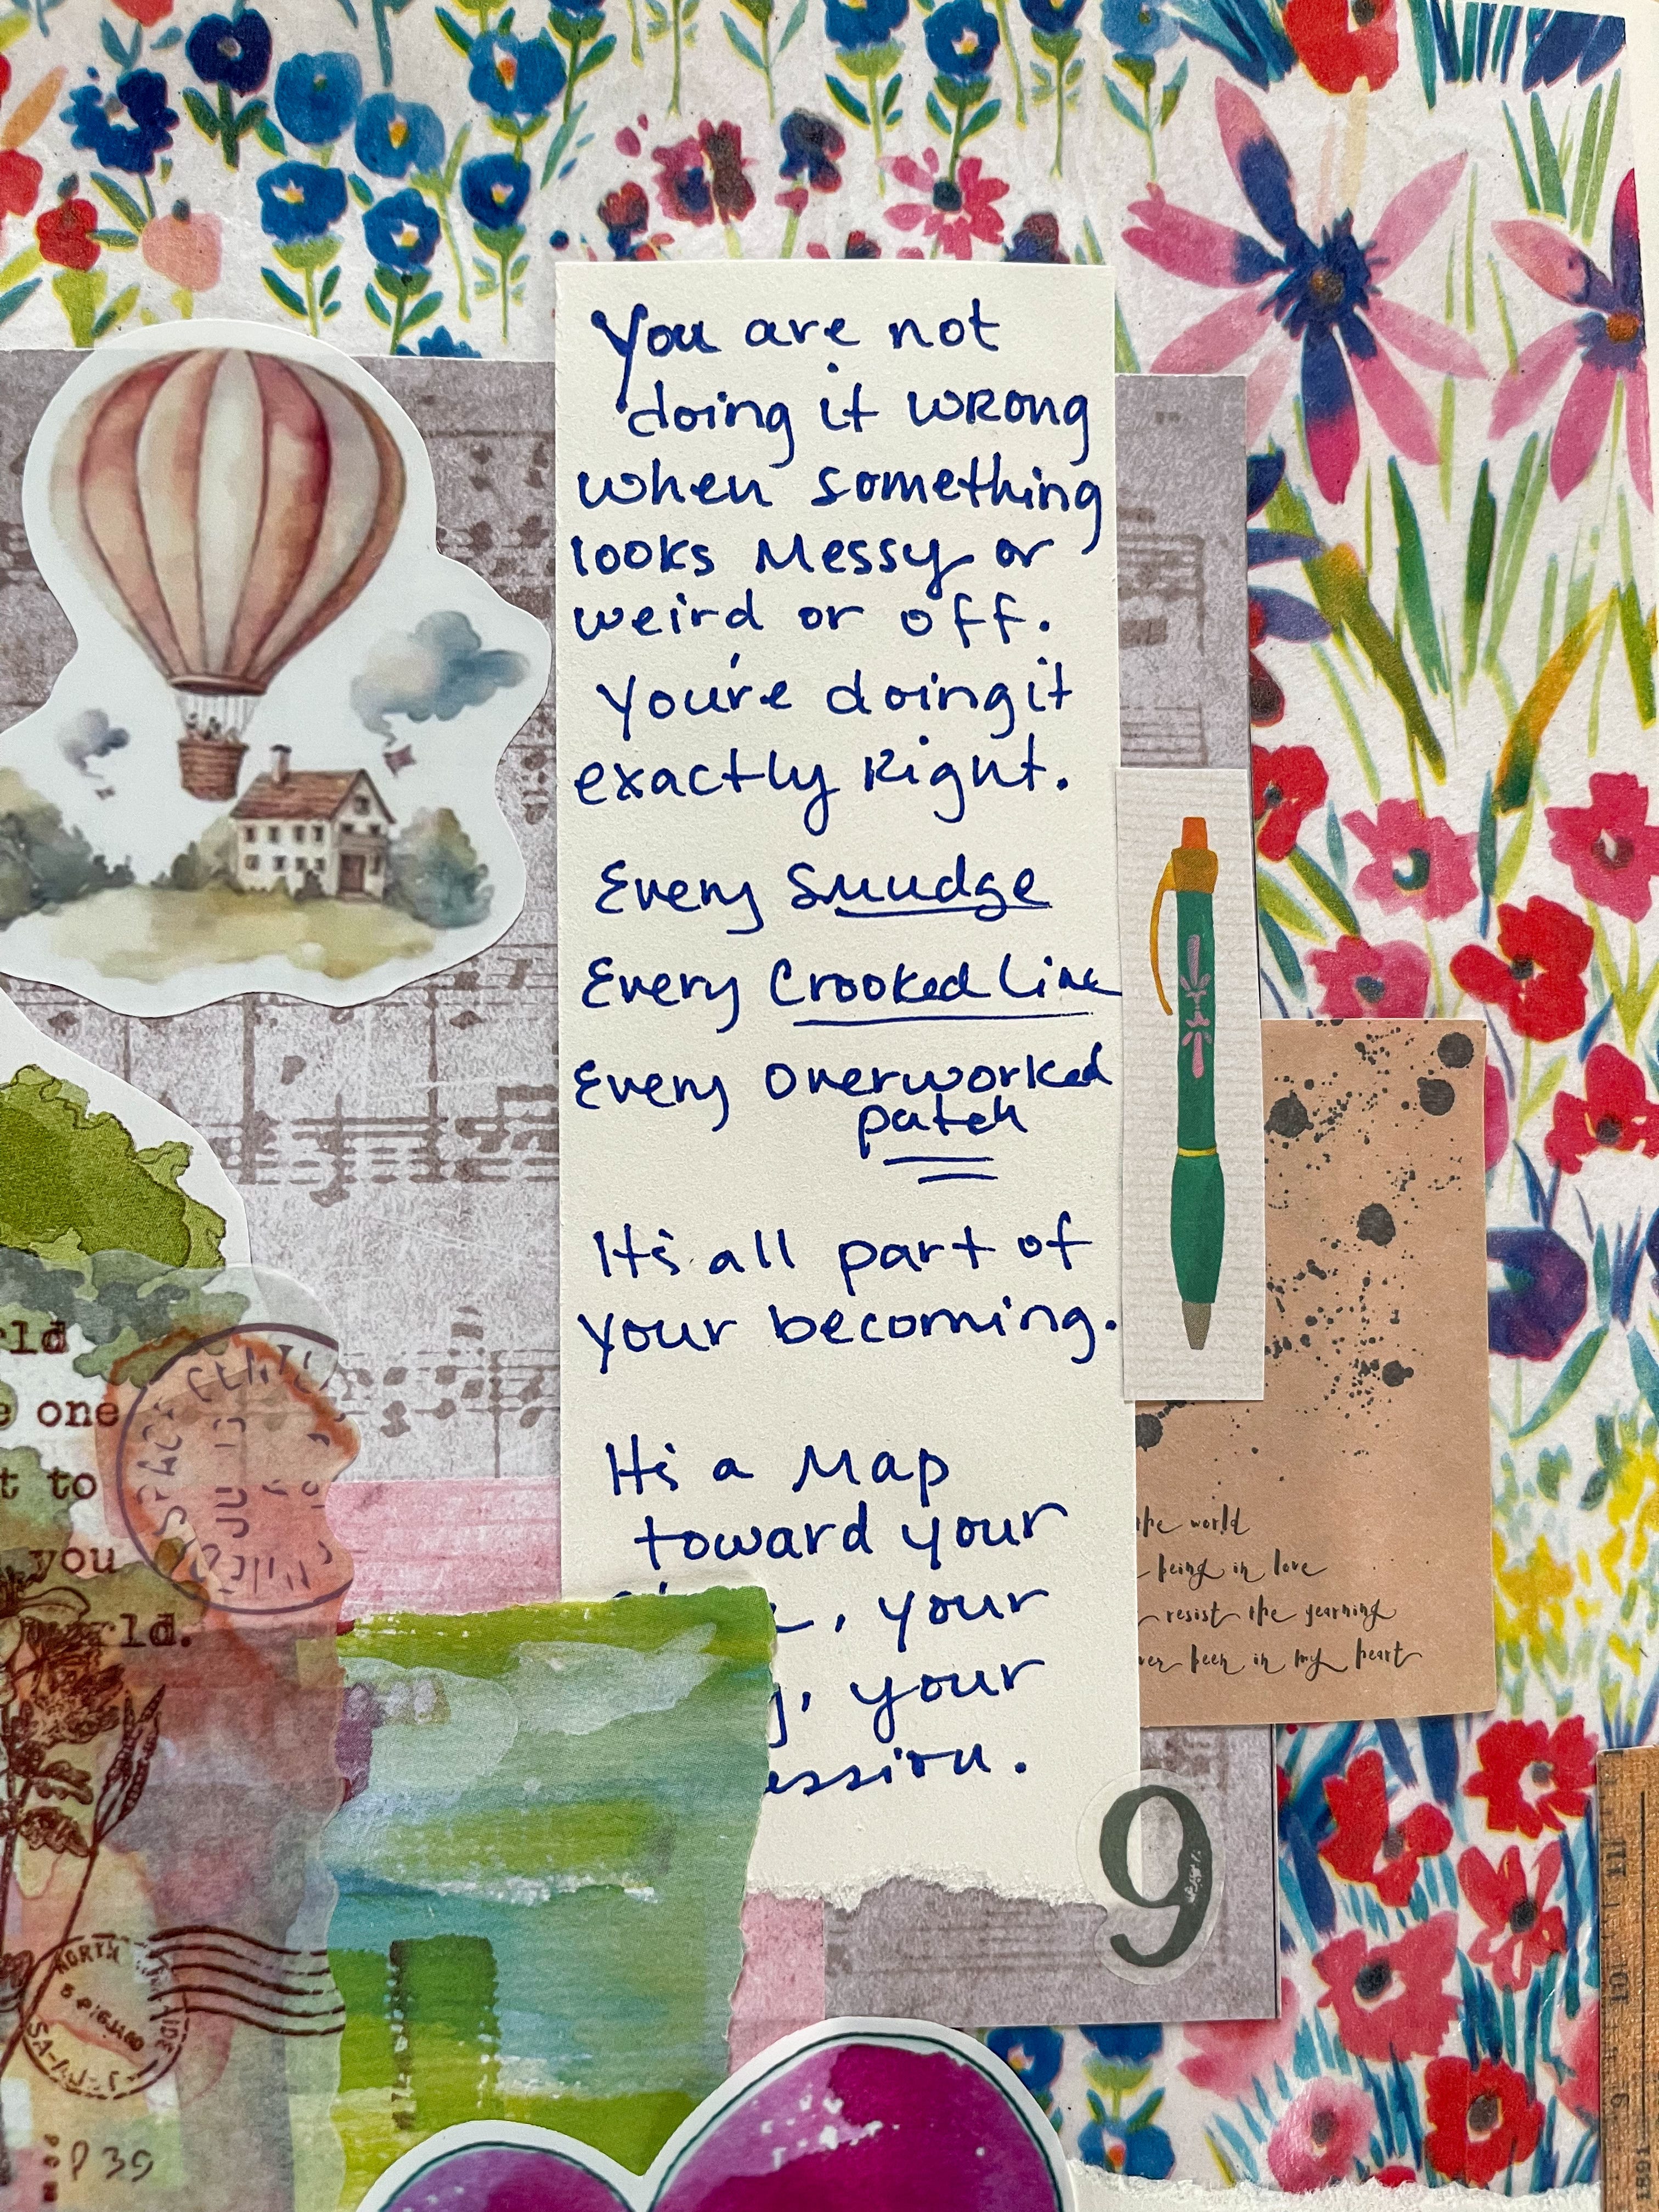 You are not
doing it wrong
when something
looks Messy or
weird or off.
You're doing it
exactly Right.
Every Smudge
Every Crooked Line
Every Overworked
patch
It's all part of
your becoming.
It's a Map
toward your
, your
, your
ession.
9
rld
e one
t to
you
world.
the world
being in love
resist the yearning
ver been in my heart
P 39
11
10
9
1891